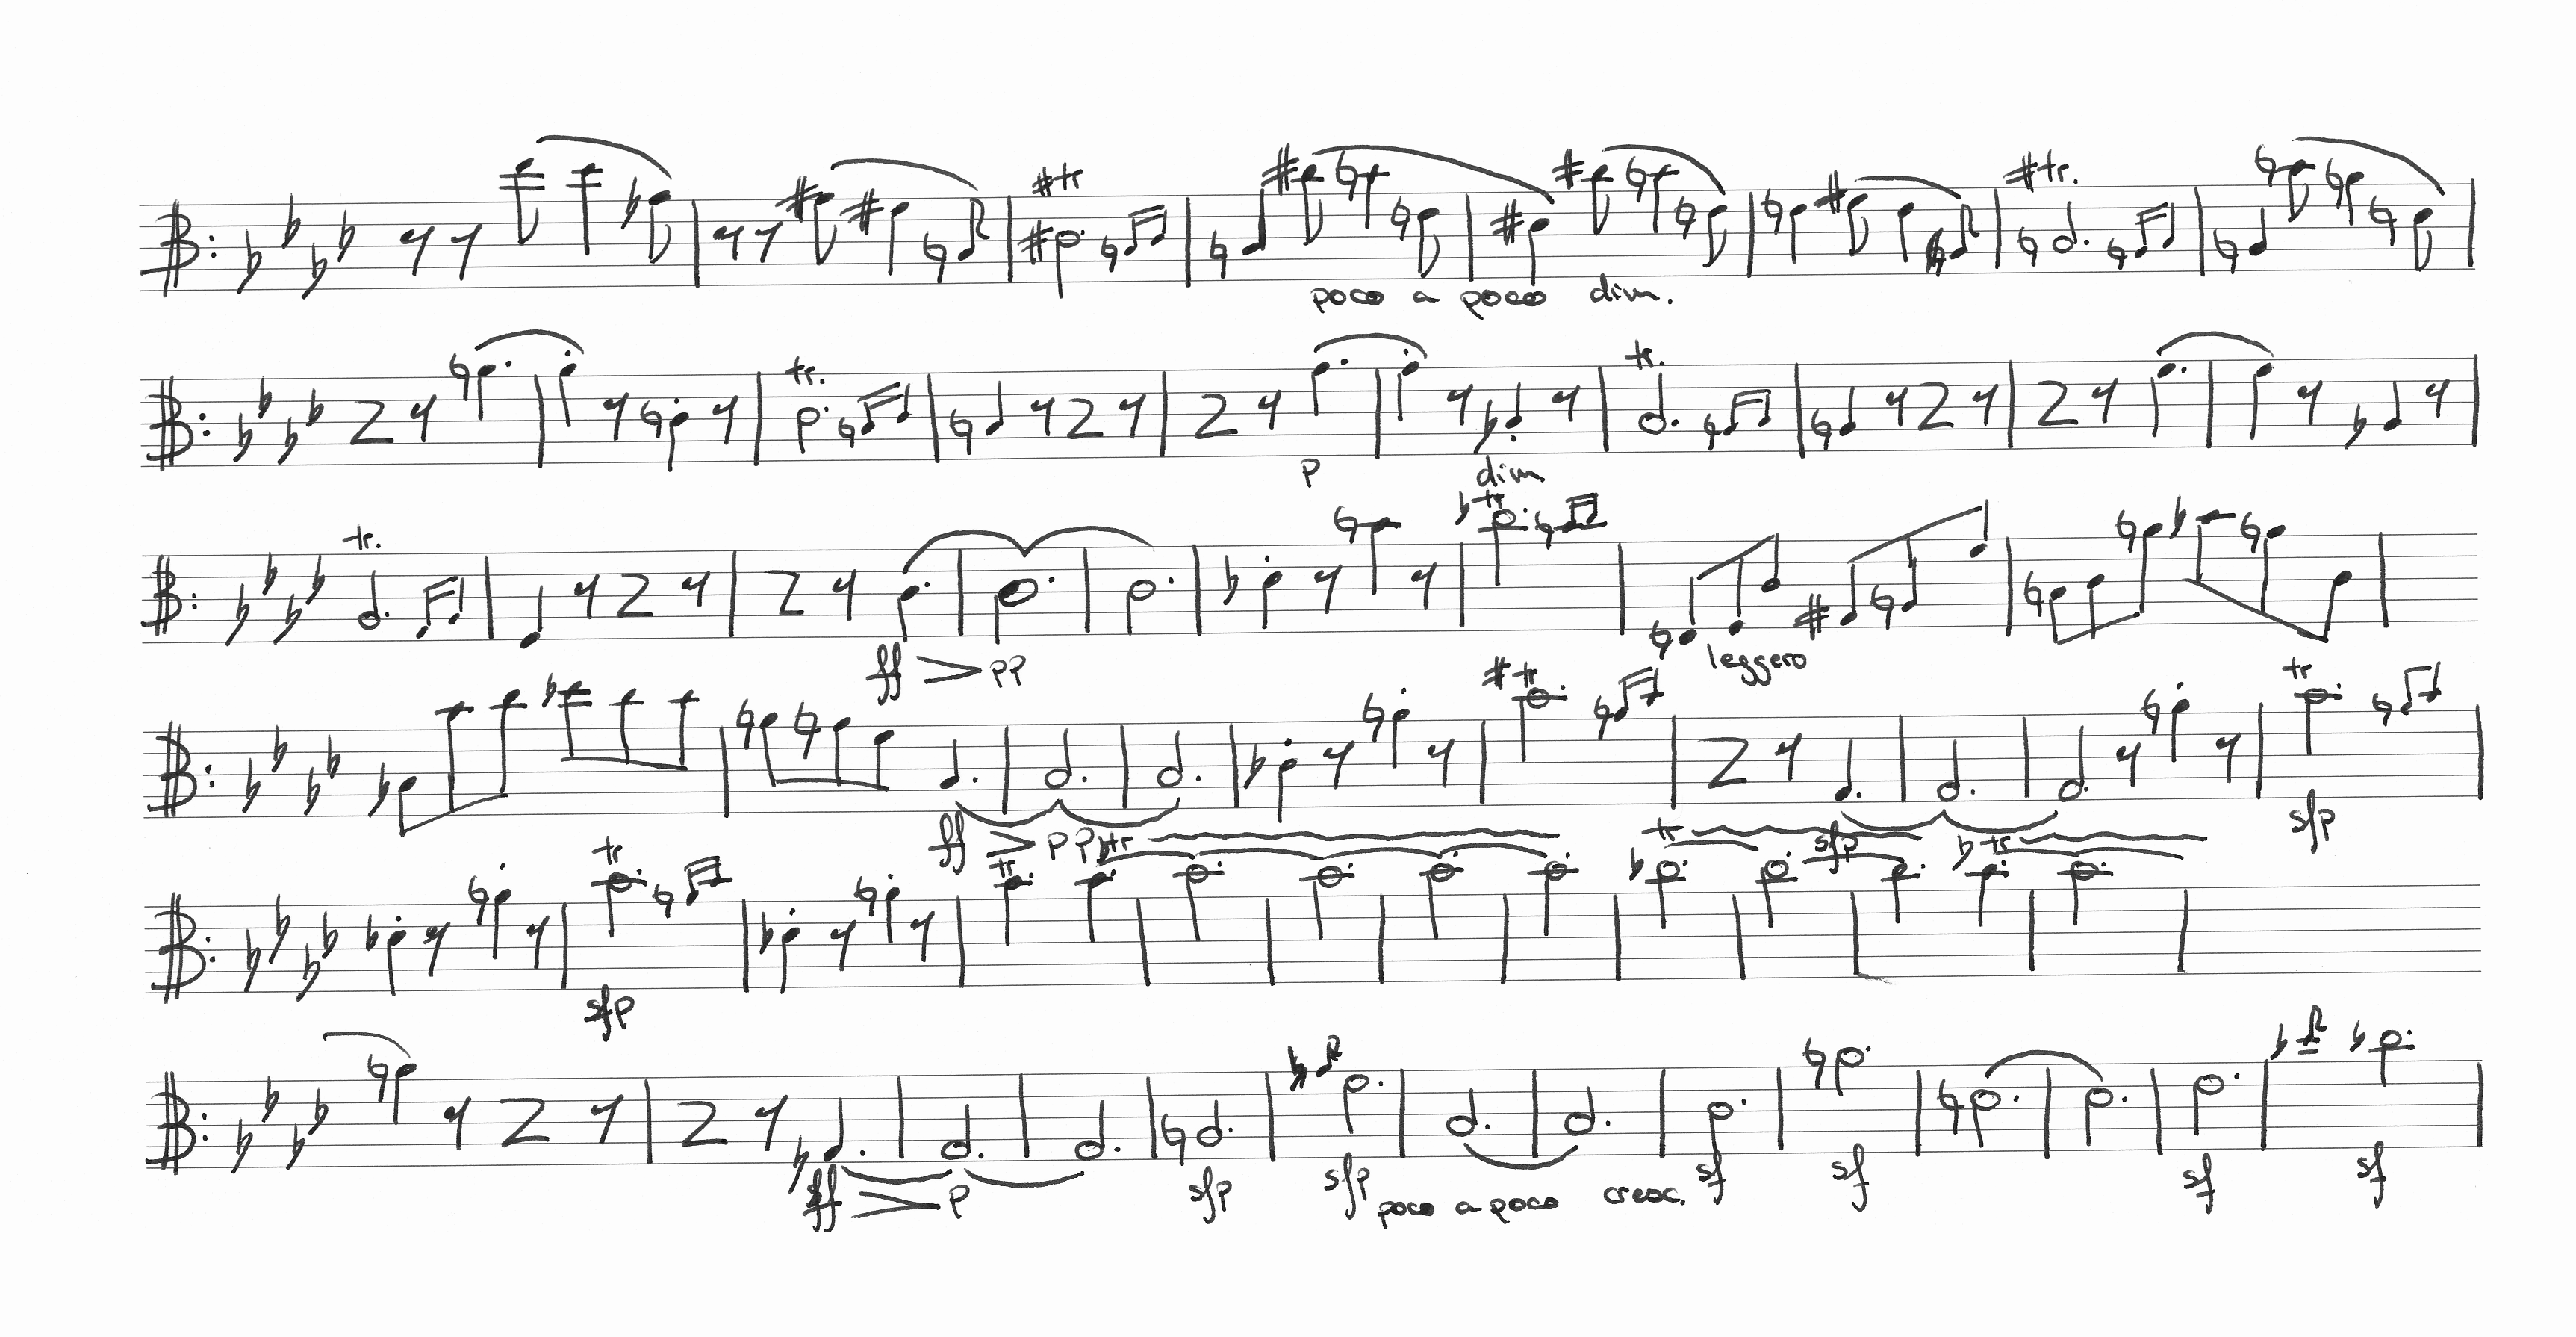 #tr #tr.
poco a poco dim.
tr. tr.
p dim
tr. btr
ff pp leggero
#tr tr
ff pp sfp sfp
tr tr btr tr btr
sfp
ff p sfp sfp poco a poco cresc. sf sf sf sf